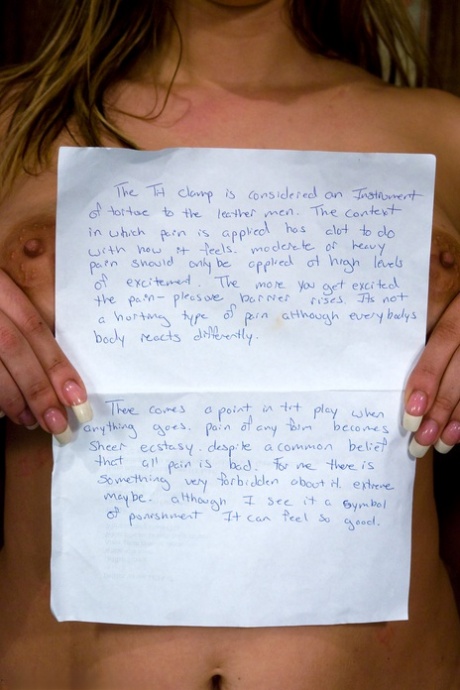 The Tit clamp is considered an Instrument
of tortue to the leather men. The context
in which pain is applied has alot to do
with how it feels. moderate or heavy
pain should only be applied at high levels
of excitement. The more you get excited
the pain-pleasure barrier rises. Its not
a hurting type of pain although everybodys
body reacts differently.
There comes a point in tit play when
anything goes. pain of any form becomes
sheer ecstasy. despite a common belief
that all pain is bad. for me there is
something very forbidden about it. extreme
maybe. although I see it a symbol
of punishment It can feel so good.